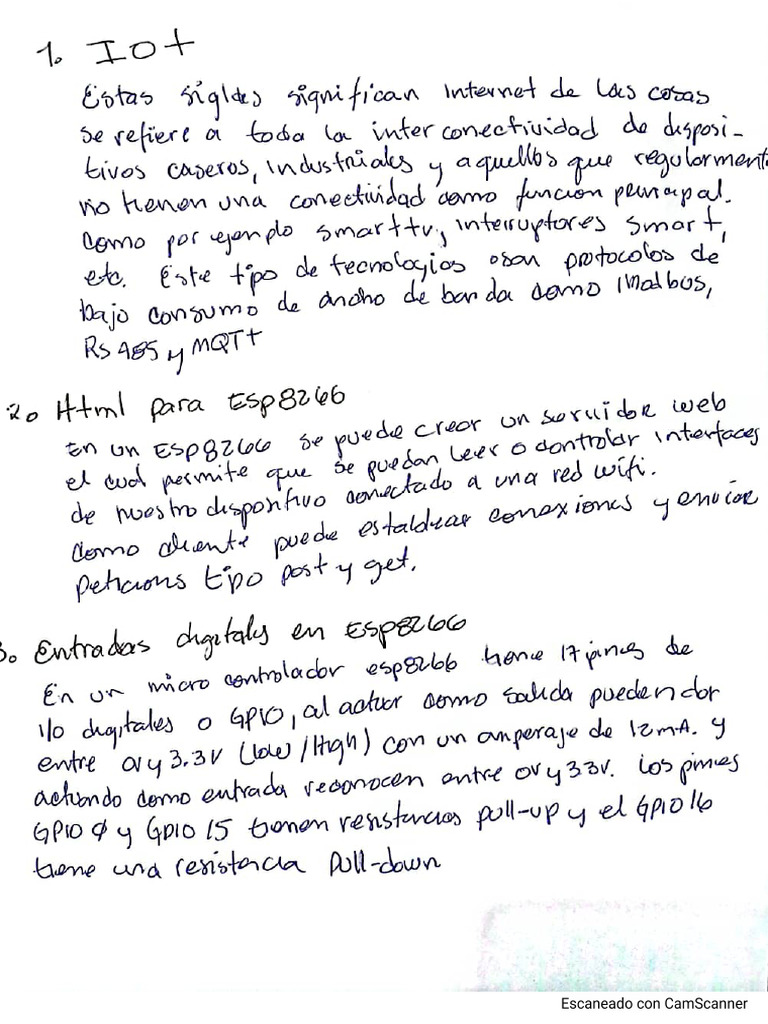 1. IOt
Estas siglas significan Internet de las cosas
se refiere a toda la inter conectividad de disposi-
tivos caseros, industriales y aquellos que regularment
no tienen una conectividad como función principal.
Como por ejemplo smarttv, interruptores smart,
etc. Este tipo de tecnologios usan protocolos de
bajo consumo de ancho de banda como Modbus,
RS 485 y MQTt
2. Html para Esp8266
En un ESP8266 se puede crear un servidor web
el cual permite que se puedan leer o controlar interfaces
de nuestro dispositivo conectado a una red wifi.
Como cliente puede establecer conexiones y enviar
peticions tipo post y get.
3. Entradas digitales en ESP8266
En un micro controlador esp8266 tiene 17 pines de
I/O digitales o GPIO, al actuar como salida pueden dar
entre 0v y 3.3v (Low/High) con un amperaje de 12mA. y
actuando como entrada reconocen entre 0v y 3.3v. Los pines
GPIO 0 y GPIO 15 tienen resistencias pull-up y el GPIO 16
tiene una resistencia Pull-down
Escaneado con CamScanner